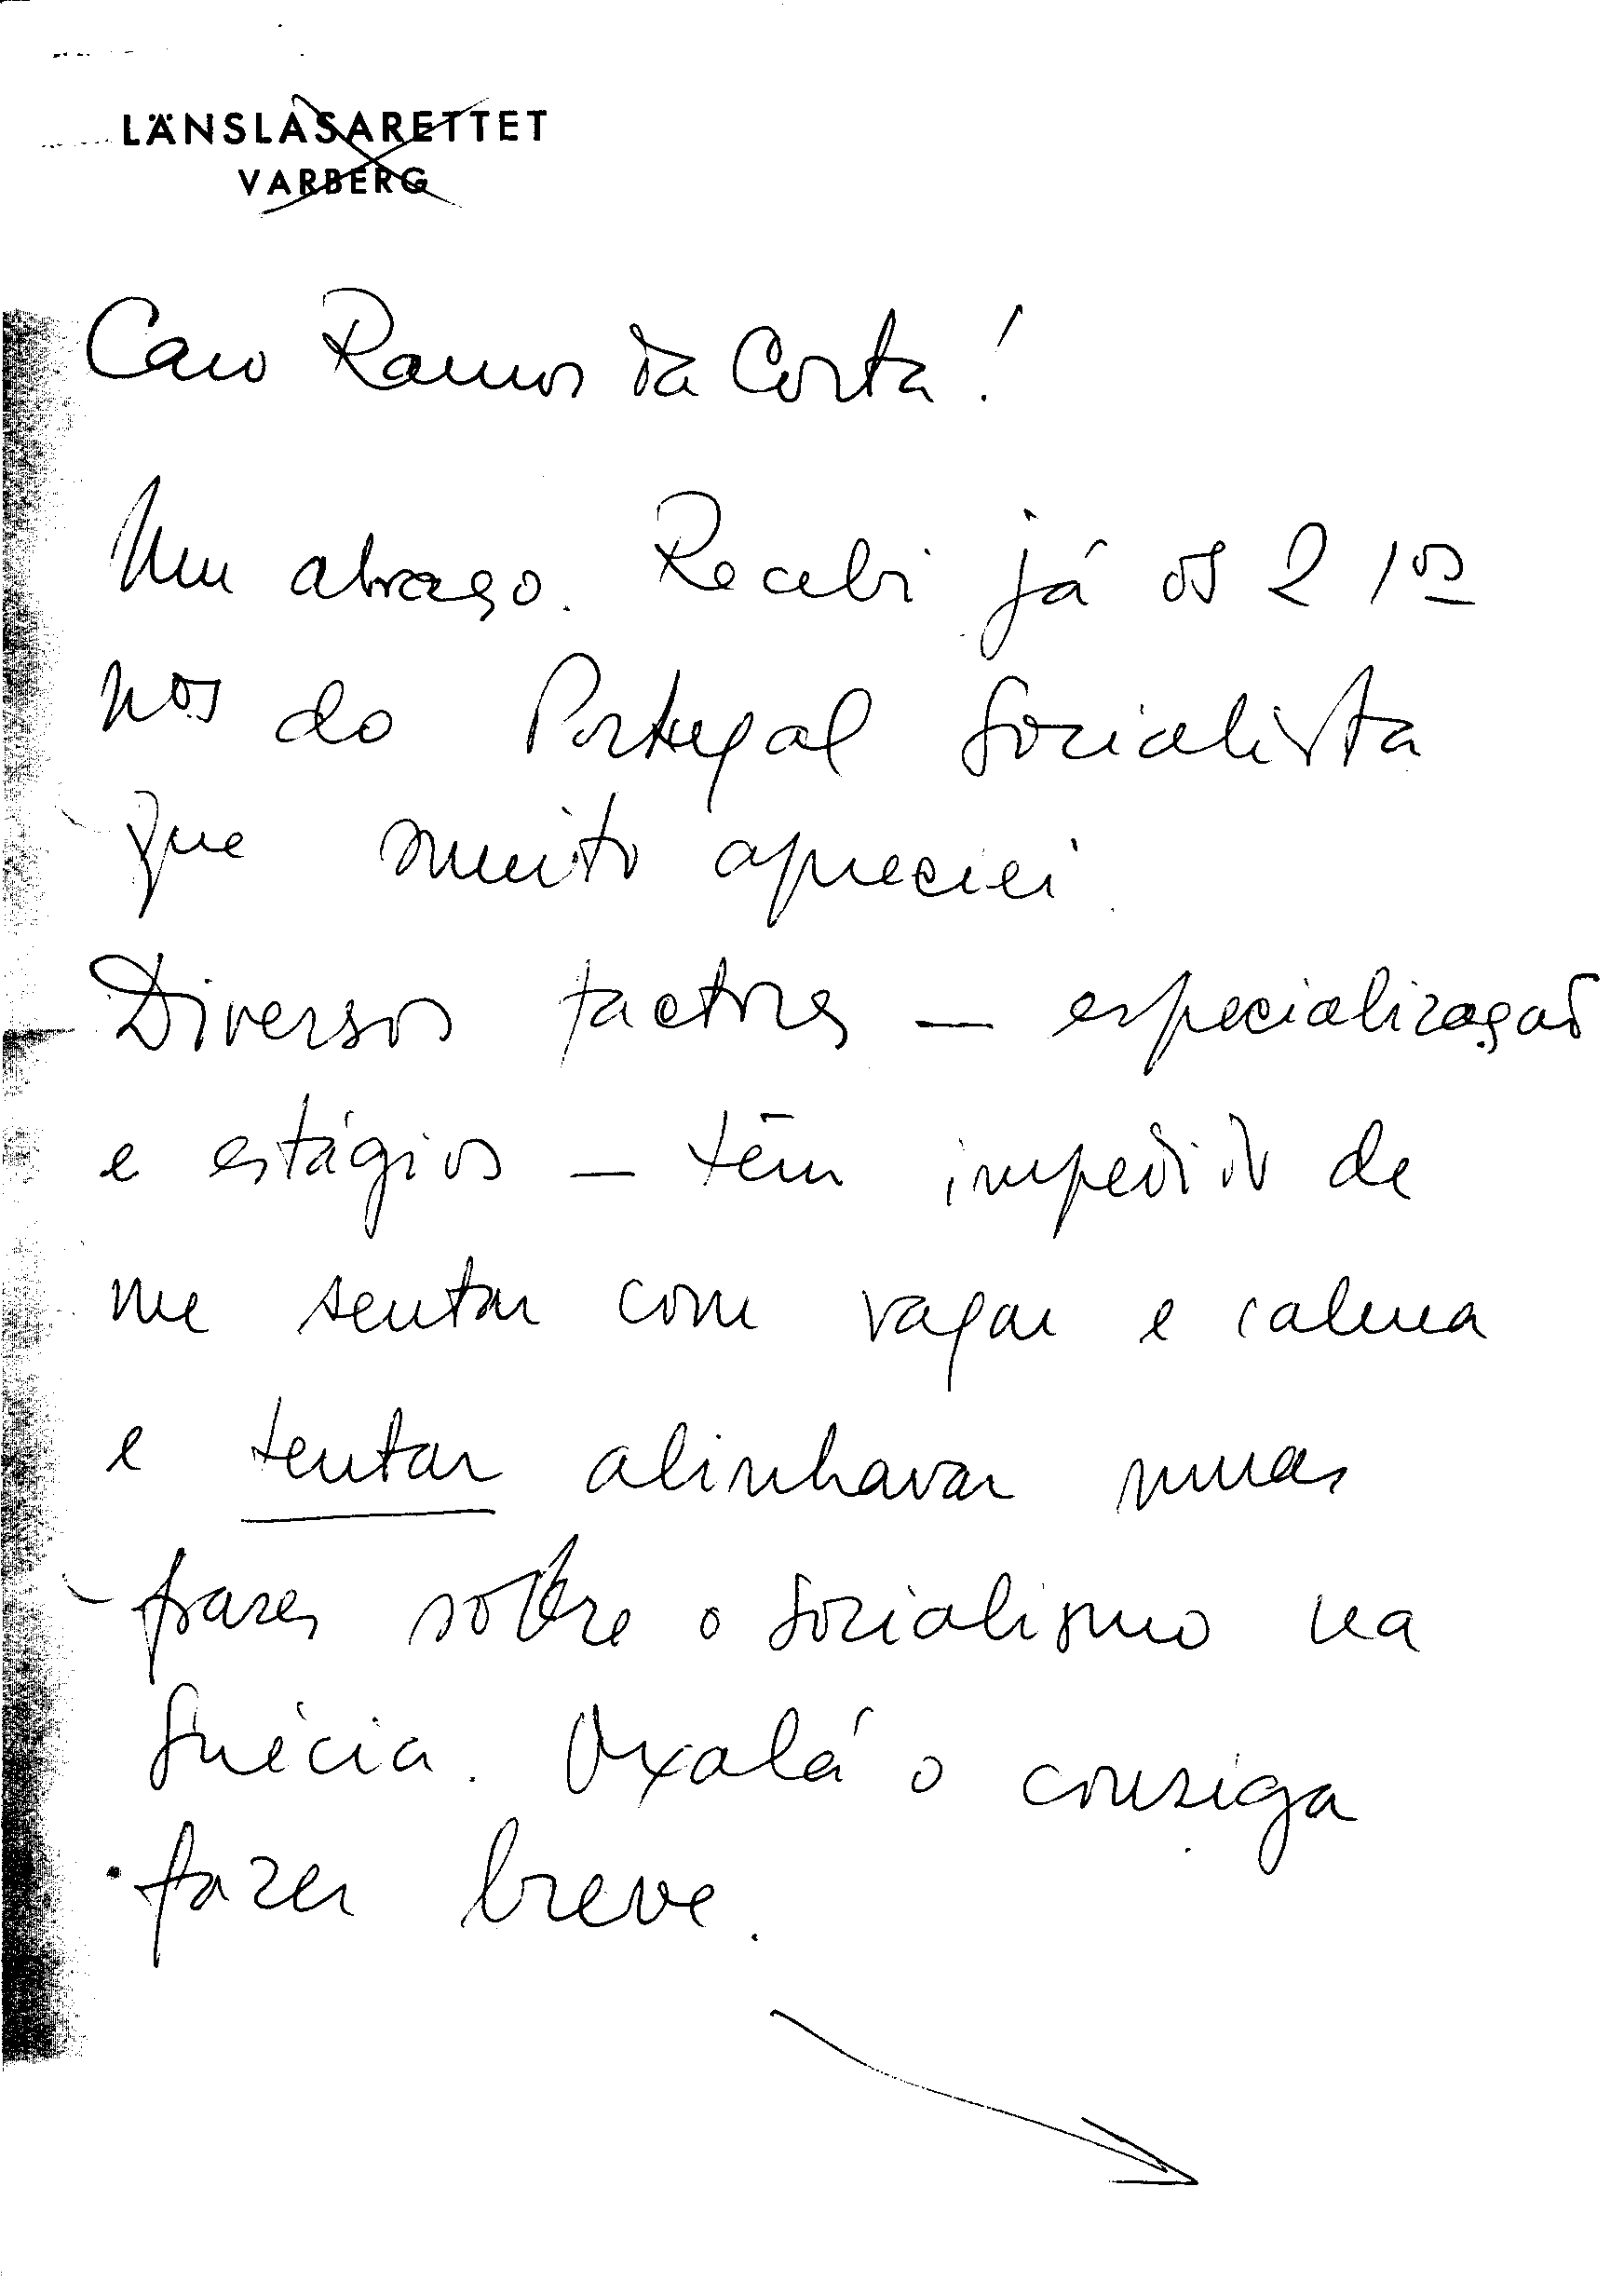 LÄNSLASARETTET
VARBERG
Caro Ramos da Costa!
Um abraço. Recebi já os 2 1os
nos do Portugal Socialista
que muito apreciei.
Diversos factores — especialização
e estágios — têm impedido de
me sentar com vagar e calma
e tentar alinhavar umas
frases sobre o socialismo na
Suécia. Oxalá o consiga
fazer breve.